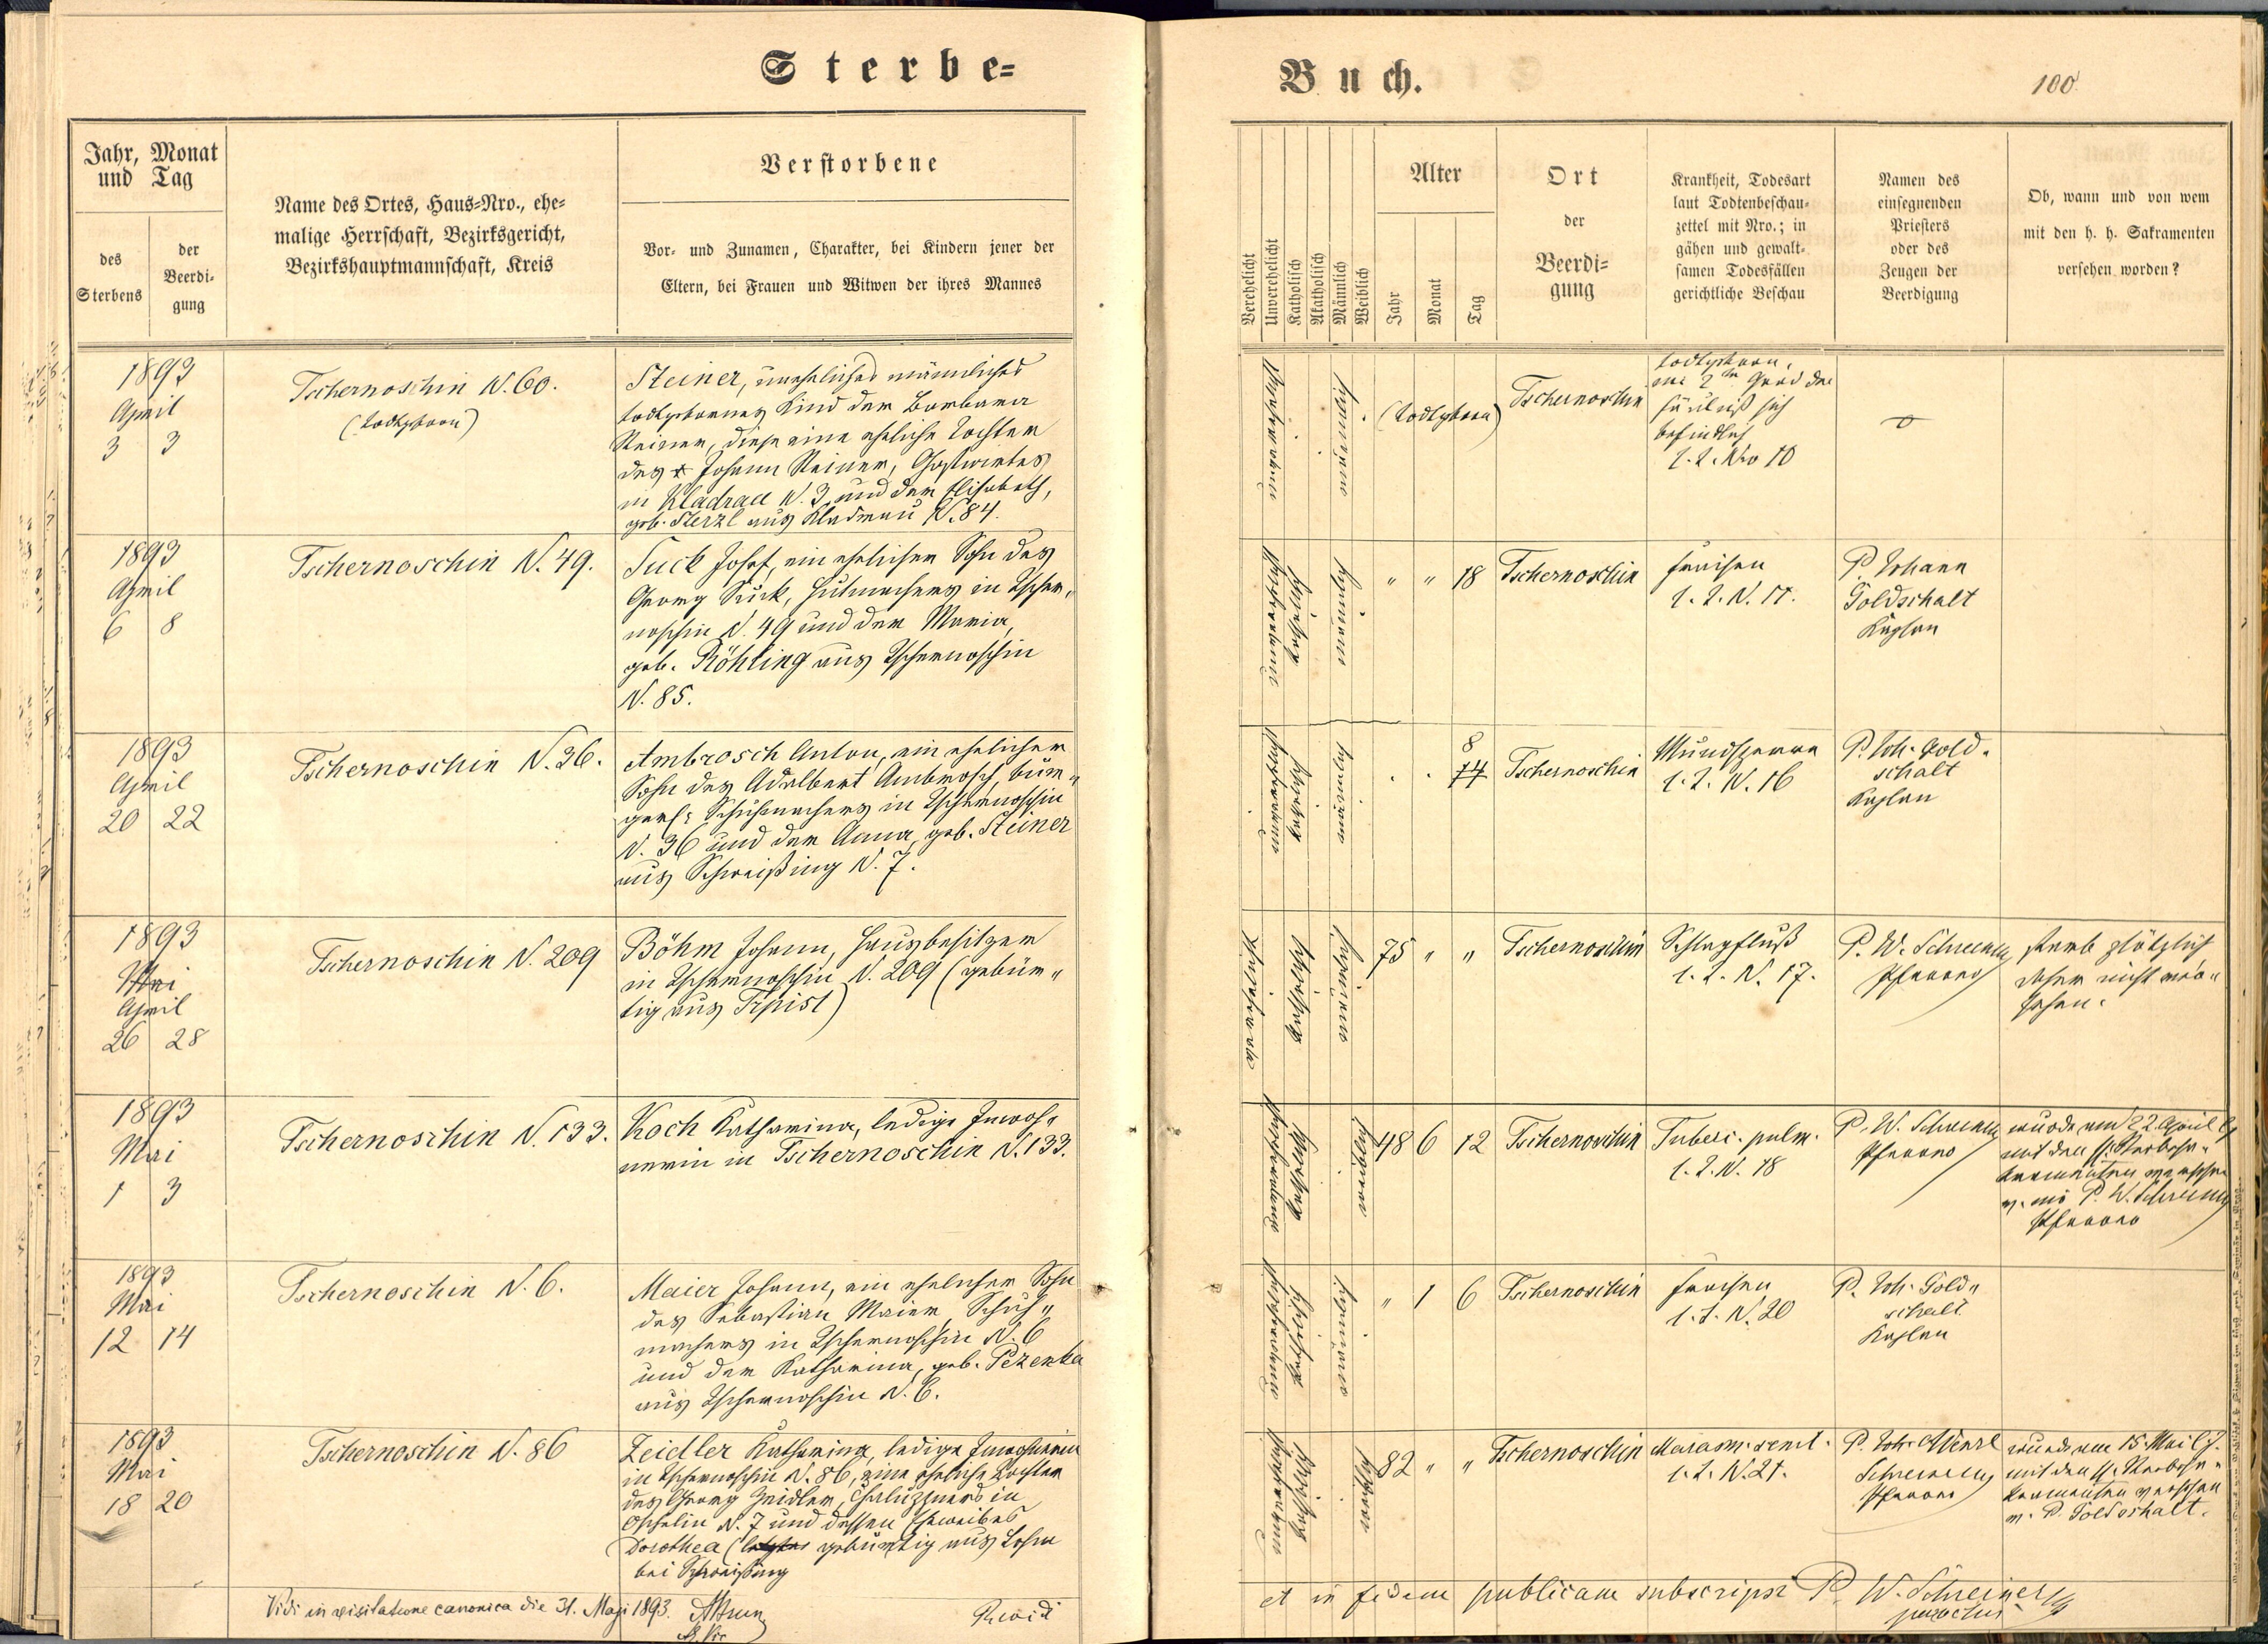 Sterbe=
Buch.
100
Jahr, Monat
und Tag
des
Sterbens
der
Beerdi-
gung
Name des Ortes, Haus=Nro., ehe=
malige Herrschaft, Bezirksgericht,
Bezirkshauptmannschaft, Kreis
Verstorbene
Vor- und Zunamen, Charakter, bei Kindern jener der
Eltern, bei Frauen und Witwen der ihres Mannes
Verehelicht
Unverehelicht
Katholisch
Akatholisch
Männlich
Weiblich
Alter
Jahr
Monat
Tag
Ort
der
Beerdi=
gung
Krankheit, Todesart
laut Todtenbeschau-
zettel mit Nro.; in
gähen und gewalt-
samen Todesfällen
gerichtliche Beschau
Namen des
einsegnenden
Priesters
oder des
Zeugen der
Beerdigung
Ob, wann und von wem
mit den h. h. Sakramenten
versehen worden?
1893
April
3 3
Tschernoschin N. 60.
(todtgeboren)
Steiner, uneheliches männliches
todtgeborenes Kind der Barbara
Steiner, diese eine eheliche Tochter
des Johann Steiner, Gastwirtes
in Kladrau N. 3 und der Elisabeth,
geb. Sterzl aus Kladrau N. 84.
unverehelicht
männlich
(todtgeboren)
Tschernoschin
todtgeboren,
im 2ten Grad der
Fäulniß sich
befindlich
l. Z. Nro 10
1893
April
6 8
Tschernoschin N. 49.
Suck Josef, ein ehelicher Sohn des
Georg Suck, Hutmachers in Tscher„
noschin N. 49 und der Maria,
geb. Röhling aus Tschernoschin
N. 85.
unverehelicht
katholisch
männlich
" " 18
Tschernoschin
Fraisen
l. Z. N. 11.
P. Johann
Goldschalt
Kaplan
1893
April
20 22
Tschernoschin N. 36.
Ambrosch Anton, ein ehelicher
Sohn des Adalbert Ambrosch, bür„
gerl. Schuhmachers in Tschernoschin
N. 36 und der Anna, geb. Steiner
aus Schweißing N. 7.
unverehelicht
katholisch
männlich
8
14
Tschernoschin
Mundsperre
l. Z. N. 16
P. Joh. Gold„
schalt
Kaplan
1893
Mai
April
26 28
Tschernoschin N. 209
Böhm Johann, Hausbesitzer
in Tschernoschin N. 209 (gebür„
tig aus Trpist)
verehelicht
katholisch
männlich
75 " "
Tschernoschin
Schlagfluß
l. Z. N. 17.
P. W. Schreiner
Pfarrer
starb plötzlich
daher nicht ver„
sehen.
1893
Mai
1 3
Tschernoschin N. 133.
Koch Katharina, ledige Inwoh„
nerin in Tschernoschin N. 133.
unverehelicht
katholisch
weiblich
48 6 12
Tschernoschin
Tuberc. pulm.
l. Z. N. 18
P. W. Schreiner
Pfarrer
wurde am 22. April
mit den hl. Sterbesa„
kramenten versehen
v. P. W. Schreiner
Pfarrer
1893
Mai
12 14
Tschernoschin N. 6.
Maier Johann, ein ehelicher Sohn
des Sebastian Maier, Schuh„
machers in Tschernoschin N. 6
und der Katharina, geb. Pezenka
aus Tschernoschin N. 6.
unverehelicht
katholisch
männlich
" 1 6
Tschernoschin
Fraisen
l. Z. N. 20
P. Joh. Gold„
schalt
Kaplan
1893
Mai
18 20
Tschernoschin N. 86
Zeidler Katharina, ledige Inwohnerin
in Tschernoschin N. 86, eine eheliche Tochter
des Georg Zeidler, Chaluppners in
Oschelin N. 7 und dessen Eheweibes
Dorothea gebürtig aus Lohm
bei Schweißing
unverehelicht
katholisch
weiblich
82 " "
Tschernoschin
Marasm. senil.
l. Z. N. 21.
P. Joh. Wenzl
Schreiner
Pfarrer
wurde am 15. Mai l. J.
mit den hl. Sterbesa„
kramenten versehen
v. P. Goldschalt.
Vidi in visitatione canonica die 31. Maji 1893.
et in fidem publicam subscripsi P. W. Schreiner
parochus